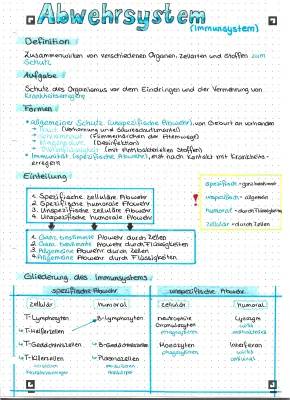 Abwehrsystem
(Immunsystem)
Definition
Zusammenwirken von verschiedenen Organen, Zellarten und Stoffen zum
Schutz
Aufgabe
Schutz des Organismus vor dem Eindringen und der Vermehrung von
Krankheitserregern
Formen
• allgemeiner Schutz (unspezifische Abwehr), von Geburt an vorhanden
→ Haut (Verhornung und Säureschutzmantel)
→ Schleimhaut (Flimmerhärchen der Atemwege)
(Desinfektion)
(mit antibakteriellen Stoffen)
• Immunität (spezifische Abwehr), erst nach Kontakt mit Krankheits-
erregern
Einteilung
1. Spezifische zelluläre Abwehr
2. Spezifische humorale Abwehr
3. Unspezifische zelluläre Abwehr
4. Unspezifische humorale Abwehr
1. Ganz bestimmte Abwehr durch Zellen
2. Ganz bestimmte Abwehr durch Flüssigkeiten
3. Allgemeine Abwehr durch Zellen
4. Allgemeine Abwehr durch Flüssigkeiten
!
spezifisch - ganz bestimmt
unspezifisch - allgemein
humoral - durch Flüssigkeiten
zellulär - durch Zellen
Gliederung des Immunsystems
spezifische Abwehr
unspezifische Abwehr
zellulär
humoral
zellulär
humoral
T-Lymphozyten
B-Lymphozyten
neutrophile
Granulozyten
phagozytieren
Lysozym
wirkt
antibakteriell
T-Helferzellen
T-Gedächtniszellen
B-Gedächtniszellen
Monozyten
phagozytieren
Interferon
wirkt
antiviral
T-Killerzellen
Plasmazellen
produzieren
Antikörper